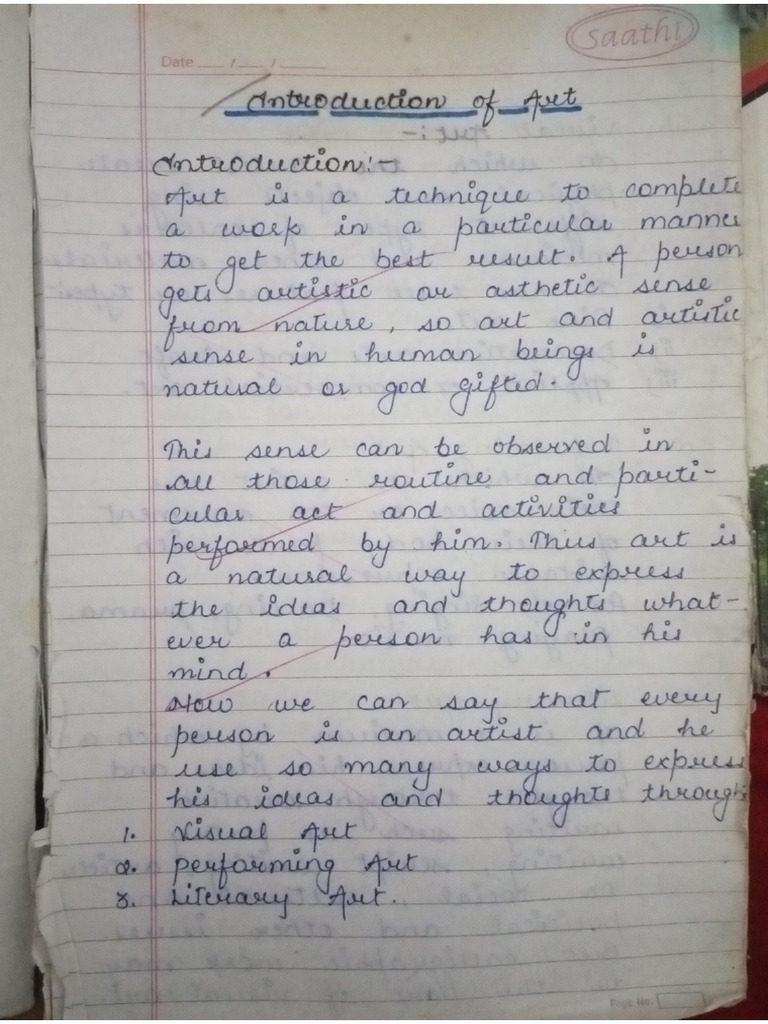 Saathi
Date __/__/____
Introduction of Art
Introduction:-
Art is a technique to complete
a work in a particular manner
to get the best result. A person
gets artistic or asthetic sense
from nature, so art and artistic
sense in human beings is
natural or god gifted.
This sense can be observed in
all those routine and parti-
cular act and activities
performed by him. Thus art is
a natural way to express
the ideas and thoughts what-
ever a person has in his
mind.
Now we can say that every
person is an artist and he
use so many ways to express
his ideas and thoughts through
1. Visual Art
2. Performing Art
3. Literary Art.
Page No.